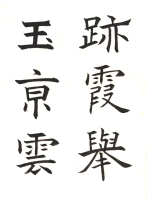 跡霞舉
玉京雲